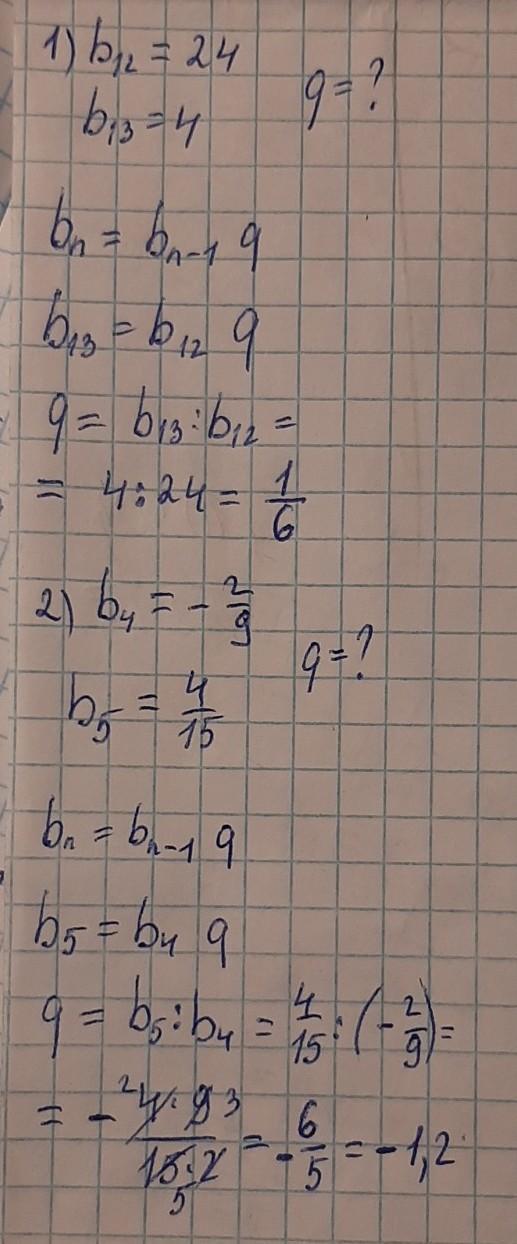 1) b₁₂ = 24
q = ?
b₁₃ = 4
bₙ = bₙ₋₁ q
b₁₃ = b₁₂ q
q = b₁₃ : b₁₂ =
= 4 : 24 = 1/6
2) b₄ = - 2/9
q = ?
b₅ = 4/15
bₙ = bₙ₋₁ q
b₅ = b₄ q
q = b₅ : b₄ = 4/15 : (- 2/9) =
= - ²4 · 9 3 / 15 · 2 5 = - 6/5 = - 1,2